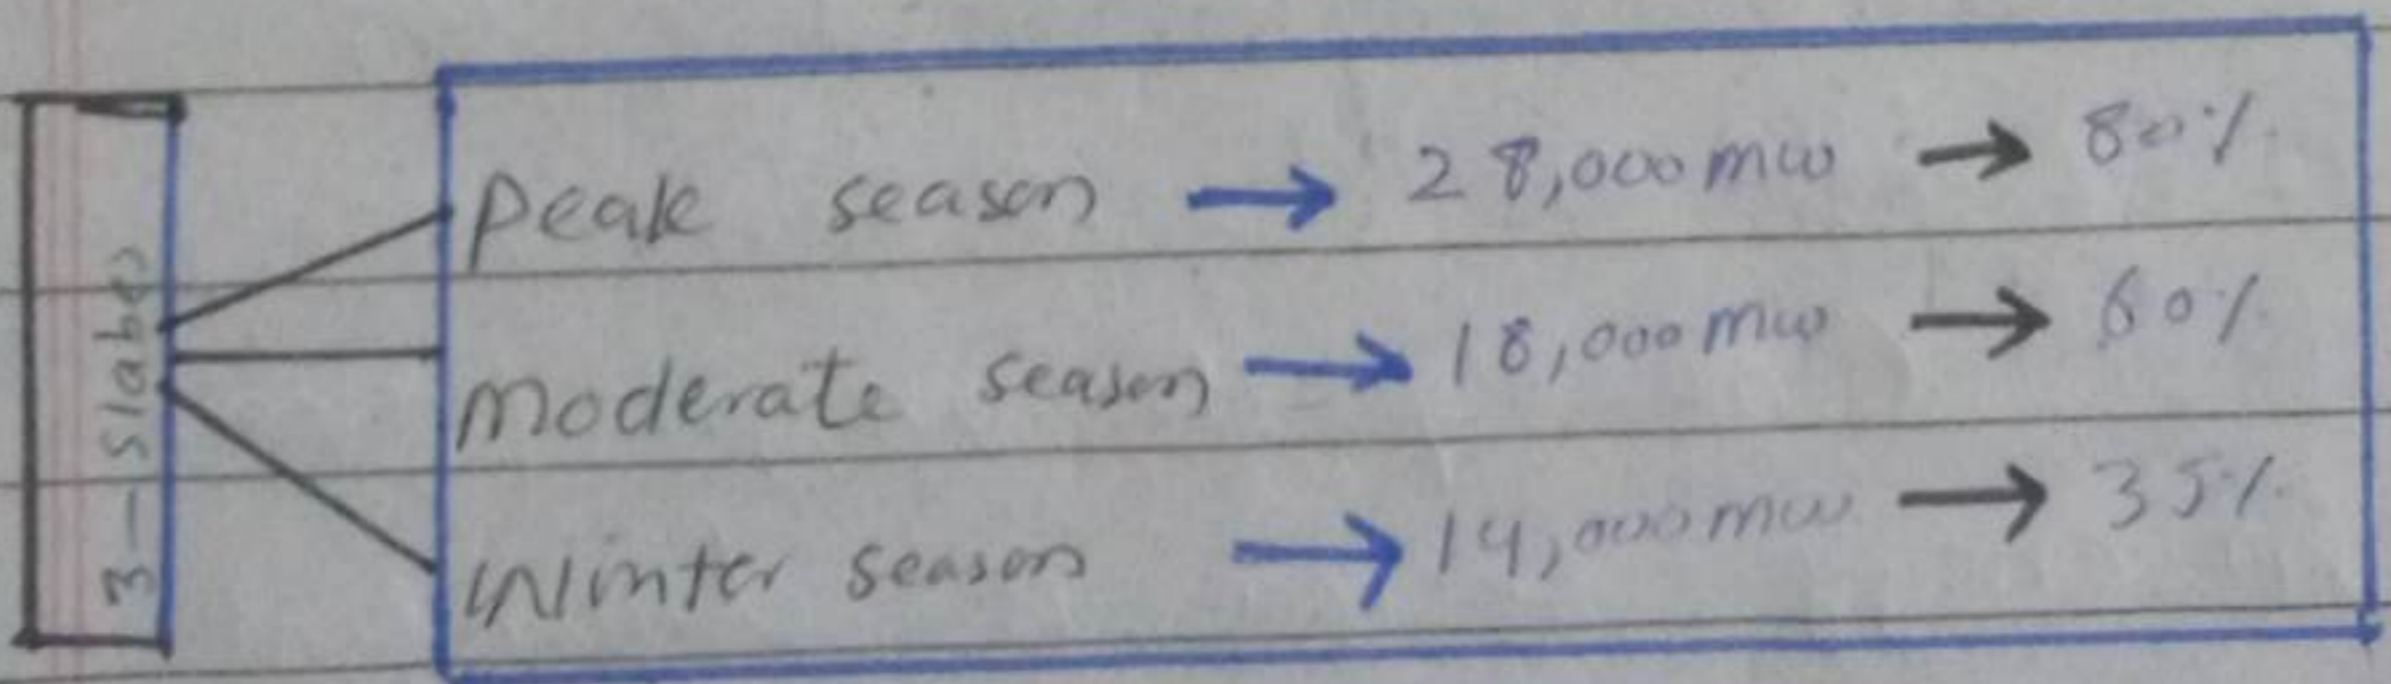 3-Slabes
Peak season → 28,000 mw → 80%
Moderate season → 18,000 mw → 60%
Winter season → 14,000 mw → 35%